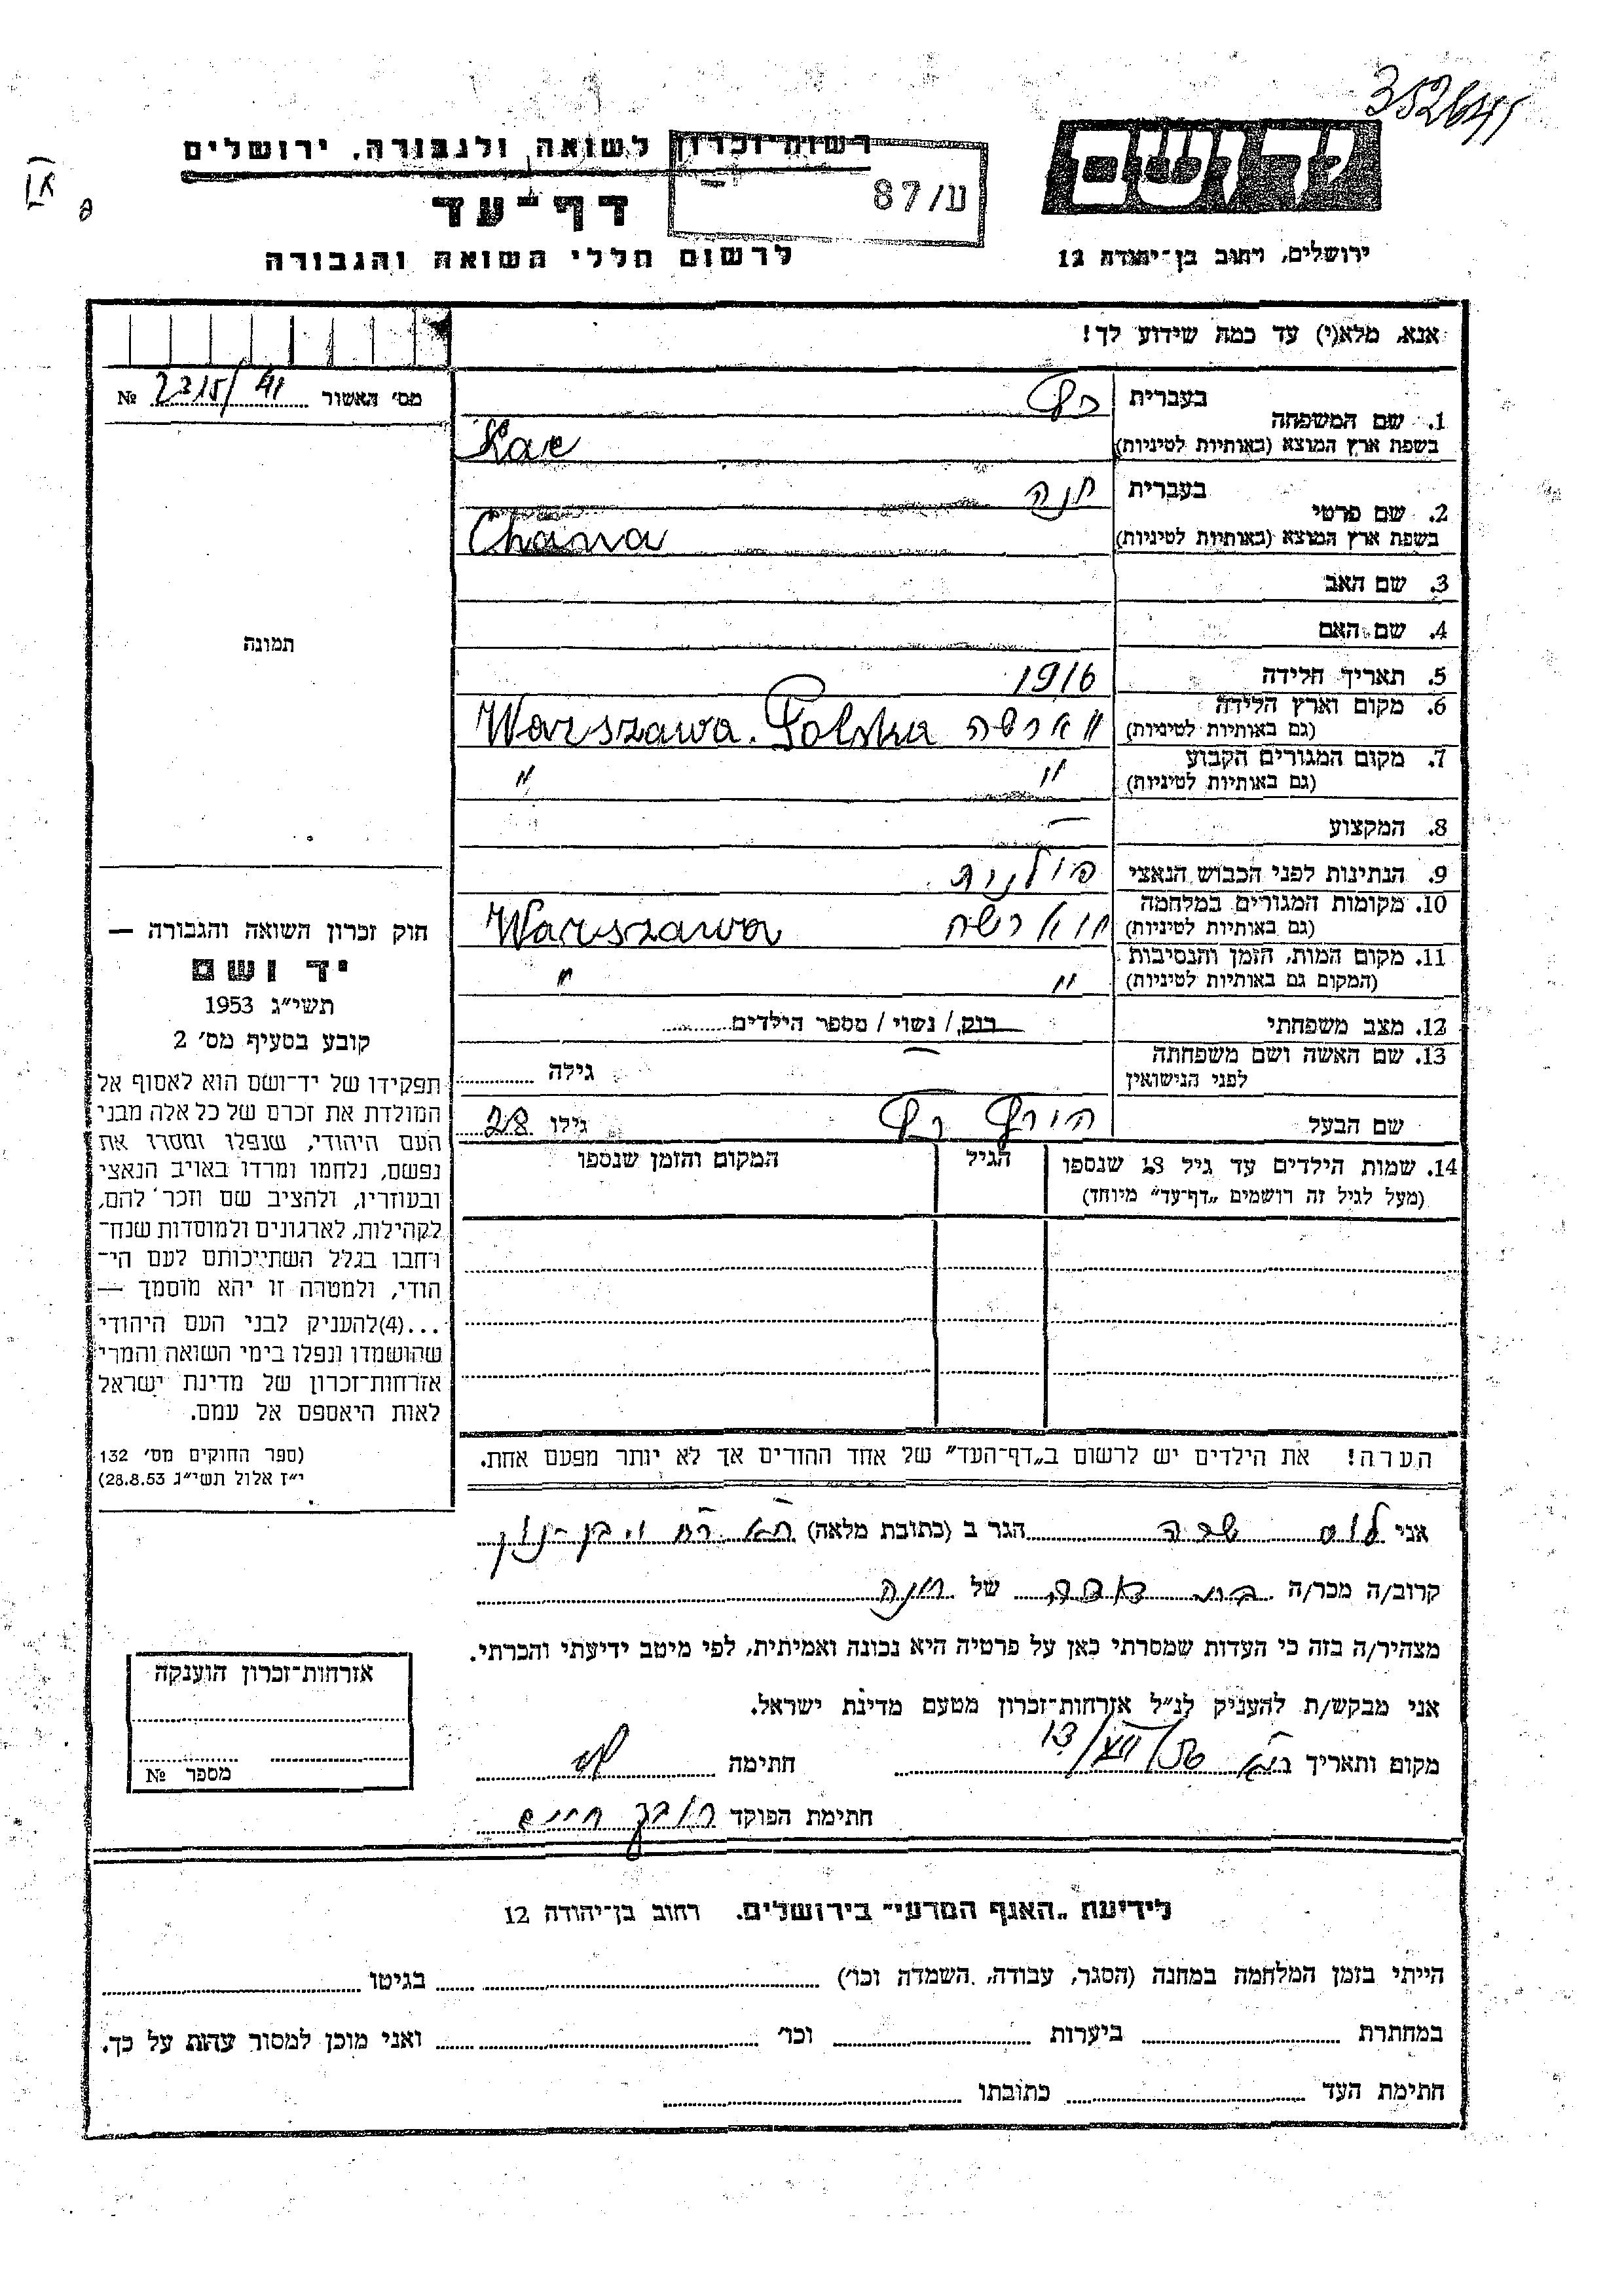 רשות-זכרון לשואה ולגבורה, ירושלים
דף-עד
לרשום חללי השואה והגבורה
ע/87
יד ושם
ירושלים, רחוב בן-יהודה 12
אנא, מלא(י) עד כמה שידוע לך!
מס׳ האשור № 2215/41
1. שם המשפחה
בעברית
בשפת ארץ המוצא (באותיות לטיניות)
2. שם פרטי
בעברית חנה
בשפת ארץ המוצא (באותיות לטיניות) Chana
3. שם האב
4. שם האם
5. תאריך הלידה 1916
6. מקום וארץ הלידה
(גם באותיות לטיניות) ווארשה Warszawa. Polska
7. מקום המגורים הקבוע
(גם באותיות לטיניות) " "
8. המקצוע —
9. הנתינות לפני הכבוש הנאצי פולנית
10. מקומות המגורים במלחמה
(גם באותיות לטיניות) ווארשה Warszawa
11. מקום המות, הזמן והנסיבות
(המקום גם באותיות לטיניות) " "
12. מצב משפחתי רווק / נשוי / מספר הילדים
13. שם האשה ושם משפחתה
לפני הנישואין — גילה
שם הבעל גילו 28
14. שמות הילדים עד גיל 18 שנספו הגיל המקום והזמן שנספו
(מעל לגיל זה רושמים „דף-עד" מיוחד)
הערה! את הילדים יש לרשום ב„דף-העד" של אחד ההורים אך לא יותר מפעם אחת.
תמונה
חוק זכרון השואה והגבורה —
יד ושם
תשי״ג 1953
קובע בסעיף מס׳ 2
תפקידו של יד-ושם הוא לאסוף אל
המולדת את זכרם של כל אלה מבני
העם היהודי, שנפלו ומסרו את
נפשם, נלחמו ומרדו באויב הנאצי
ובעוזריו, ולהציב שם וזכר להם,
לקהילות, לארגונים ולמוסדות שנח-
רבו בגלל השתייכותם לעם הי-
הודי, ולמטרה זו יהא מוסמך —
...(4)להעניק לבני העם היהודי
שהושמדו ונפלו בימי השואה והמרי
אזרחות-זכרון של מדינת ישראל
לאות היאספם אל עמם.
(ספר החוקים מס׳ 132
י״ז אלול תשי״ג 28.8.53)
אני שרה הגר ב (כתובת מלאה)
קרוב/ה מכר/ה של חנה
מצהיר/ה בזה כי העדות שמסרתי כאן על פרטיה היא נכונה ואמיתית, לפי מיטב ידיעתי והכרתי.
אני מבקש/ת להעניק לנ״ל אזרחות-זכרון מטעם מדינת ישראל.
מקום ותאריך חתימה
חתימת הפוקד חיים
אזרחות-זכרון הוענקה
מספר №
לידיעת „האגף המדעי" בירושלים. רחוב בן-יהודה 12
הייתי בזמן המלחמה במחנה (הסגר, עבודה, השמדה וכו׳) בגיטו
במחתרת ביערות וכו׳ ואני מוכן למסור עדות על כך.
חתימת העד כתובתו